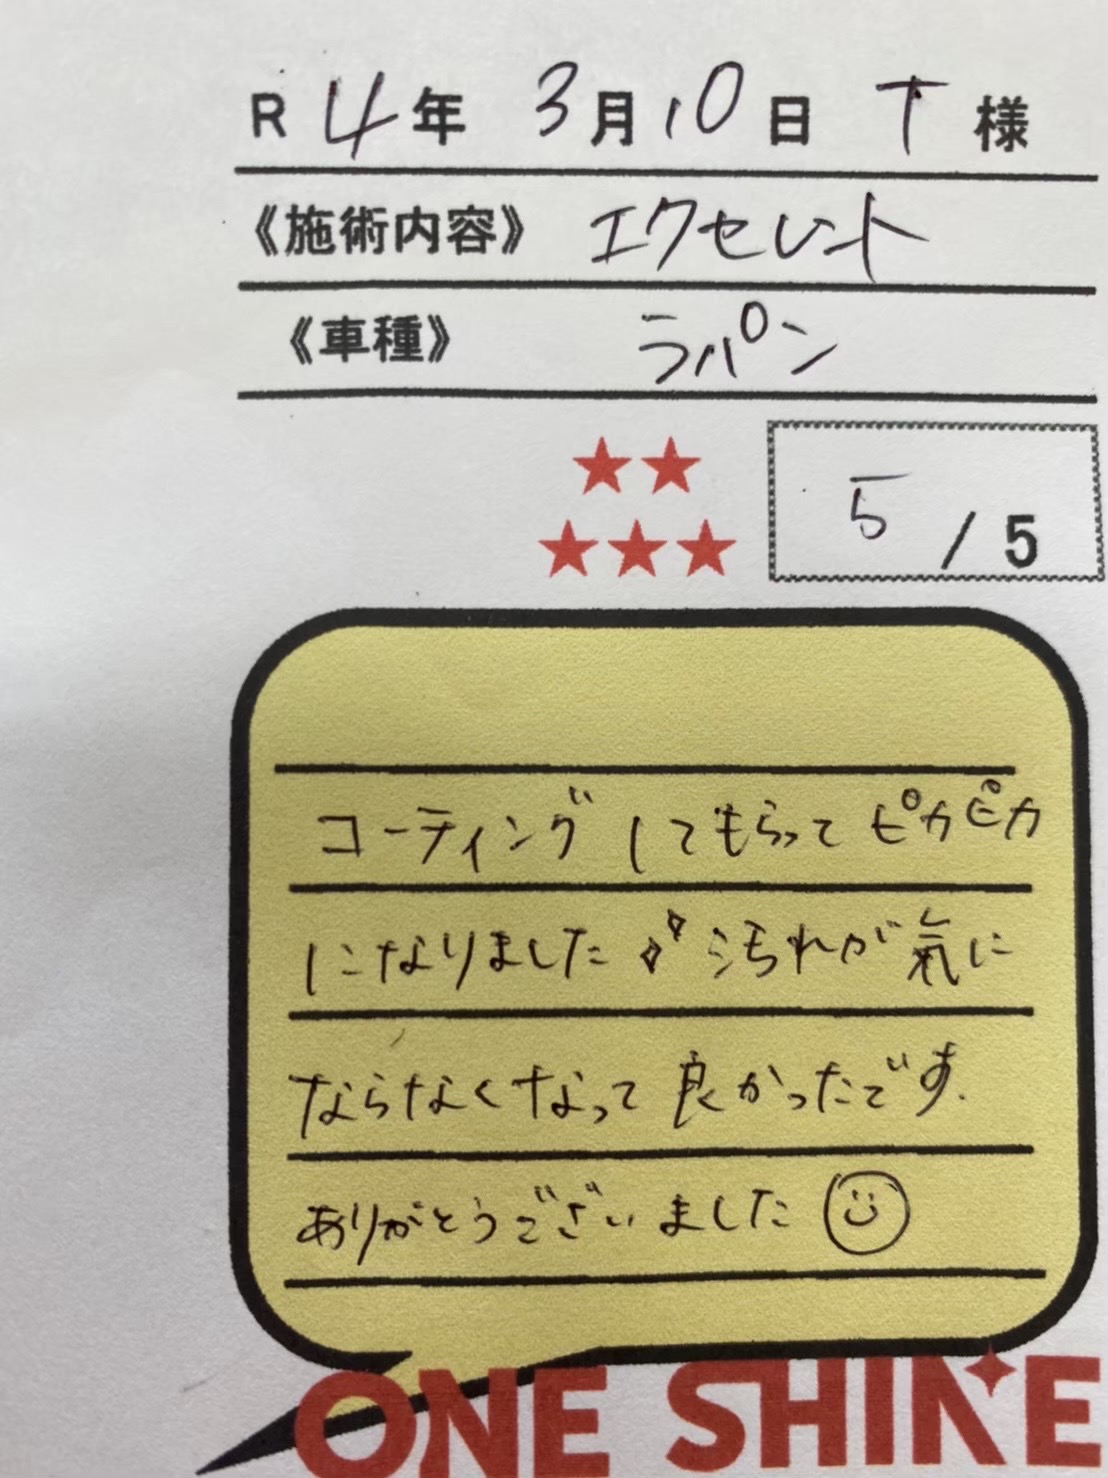 R 4年 3月10日 T 様
《施術内容》 エクセレント
《車種》 ラパン
5 / 5
コーティングしてもらってピカピカ
になりました 汚れが気に
ならなくなって良かったです.
ありがとうございました
ONE SHINE